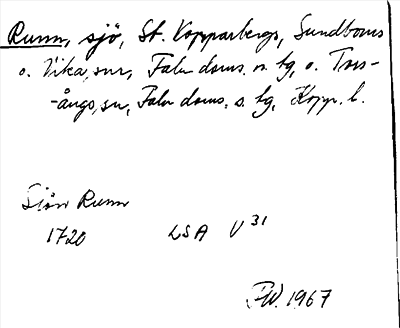 Runn, sjö, St. Kopparbergs, Sundborns
o. Vika, snr, Falu doms. n. tg, o. Tors-
-ångs, sn, Falu doms. s. tg, Kopp. l.
Sjön Runn
1720 LSA V 31
FW. 1967